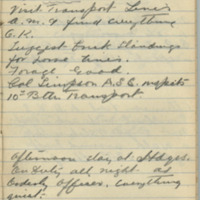 Visit Transport Lines
A.M. & find everything
O.K.
Suggest brick standings
for horse lines.
Forage Good.
Col Simpson A.S.C. inspects
10th Bttn Transport
Afternoon stay at Hdqrs.
On Duty all night as
Orderly Officer. Everything
quiet.